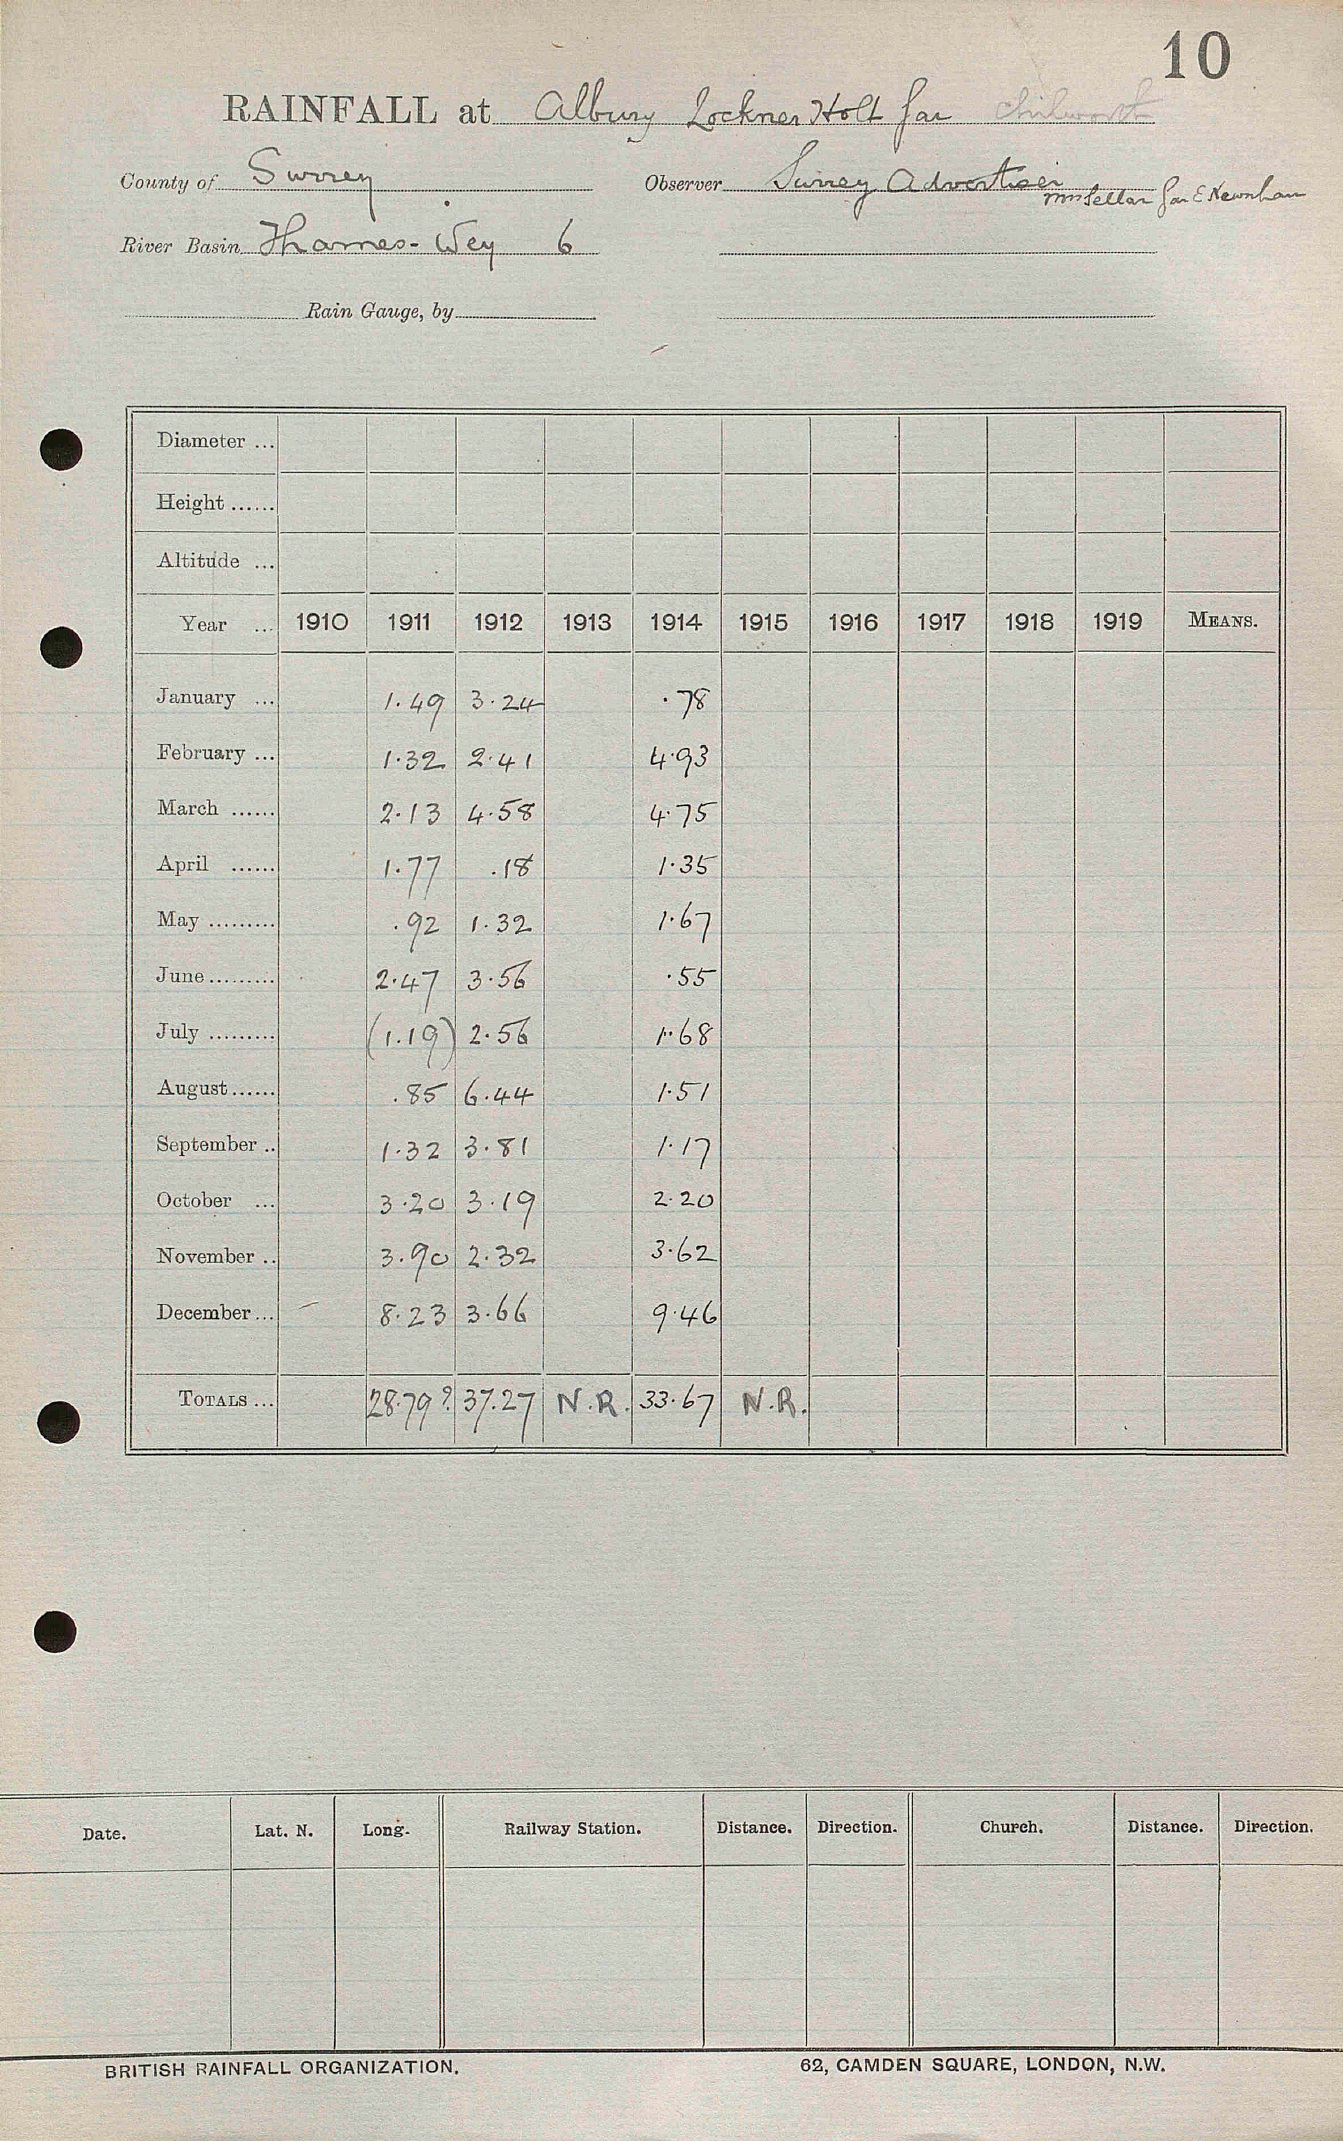 10
RAINFALL at Albury Lockner Holt Gar Chilworth
County of Surrey Observer Surrey Advertiser
Mrs Sellar Gar E Newnham
River Basin Thames-Wey 6
Rain Gauge, by
Diameter ...
Height ......
Altitude ...
Year ... 1910 1911 1912 1913 1914 1915 1916 1917 1918 1919 MEANS.
January ... 1.49 3.24 .78
February ... 1.32 2.41 4.93
March ...... 2.13 4.58 4.75
April ...... 1.77 .18 1.35
May ......... .92 1.32 1.67
June ......... 2.47 3.56 .55
July ......... (1.19) 2.56 1.68
August ...... .85 6.44 1.51
September .. 1.32 3.81 1.17
October ... 3.20 3.19 2.20
November .. 3.90 2.32 3.62
December ... – 8.23 3.66 9.46
TOTALS ... 28.79? 37.27 N.R. 33.67 N.R.
Date. Lat. N. Long. Railway Station. Distance. Direction. Church. Distance. Direction.
BRITISH RAINFALL ORGANIZATION. 62, CAMDEN SQUARE, LONDON, N.W.